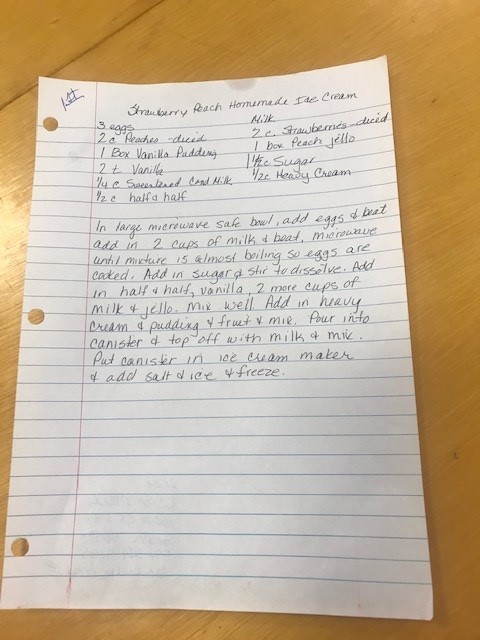 1st
Strawberry Peach Homemade Ice Cream
3 eggs Milk
2 c Peaches - diced 2 c. Strawberries - diced
1 Box Vanilla Pudding 1 box Peach jello
2 t Vanilla 1 1/2 c Sugar
1/4 c Sweetened Cond Milk 1/2 c Heavy Cream
1/2 c half & half
In large microwave safe bowl, add eggs & beat
add in 2 cups of milk & beat, microwave
until mixture is almost boiling so eggs are
cooked. Add in sugar & stir to dissolve. Add
in half & half, vanilla, 2 more cups of
milk & jello. Mix well. Add in heavy
cream & pudding & fruit & mix. Pour into
canister & top off with milk & mix.
Put canister in ice cream maker
& add salt & ice & freeze.